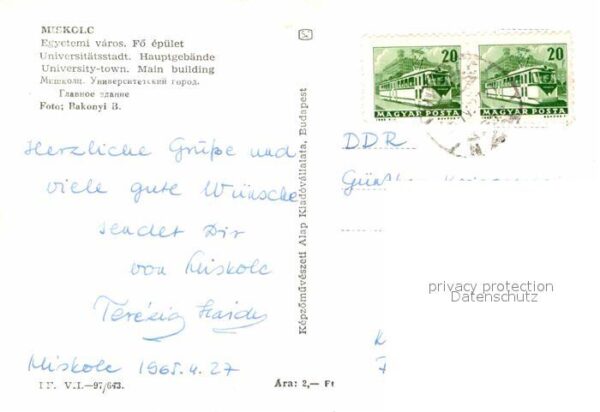 MISKOLC
Egyetemi város. Fő épület
Universitätsstadt. Hauptgebände
University-town. Main building
Мишкольц. Университетский город.
Главное здание
Foto: Bakonyi B.
Herzliche Grüße und
viele gute Wünsche
sendet Dir
von Miskolc
Miskolc 1965. 4. 27
I F. V.I.—97/643.
Ára: 2,— Ft
Képzőművészeti Alap Kiadóvállalata, Budapest
20
MAGYAR POSTA
20
MAGYAR POSTA
DDR
privacy protection
Datenschutz